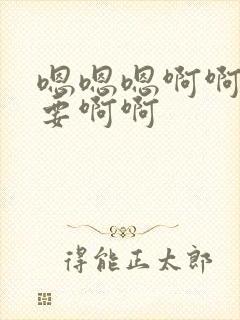 嗯嗯嗯啊啊
要啊啊
得能正太郎